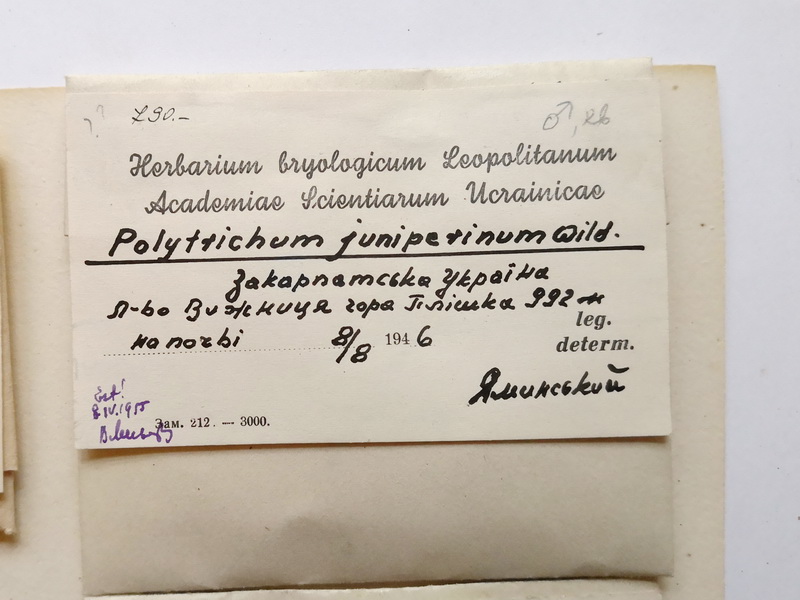 290.-
♂, 26
Herbarium bryologicum Leopolitanum
Academiae Scientiarum Ucrainicae
Polytrichum juniperinum Wild.
Закарпатська Україна
Л-во Вижниця гора Плішка 992 м
на почві 8/8 1946
leg.
determ.
Яминський
Est!
8 IV.1955
Зам. 212. — 3000.